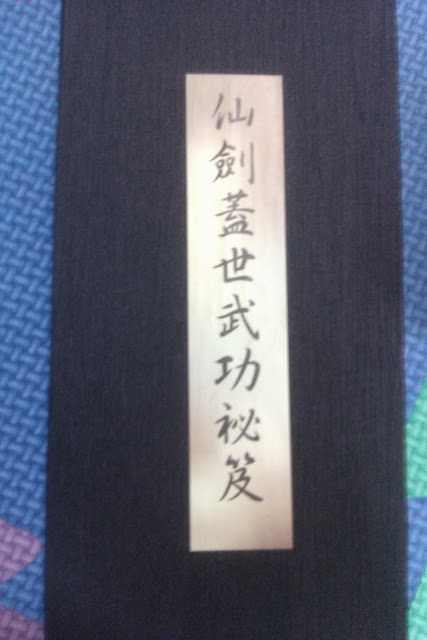 仙劍蓋世武功祕笈